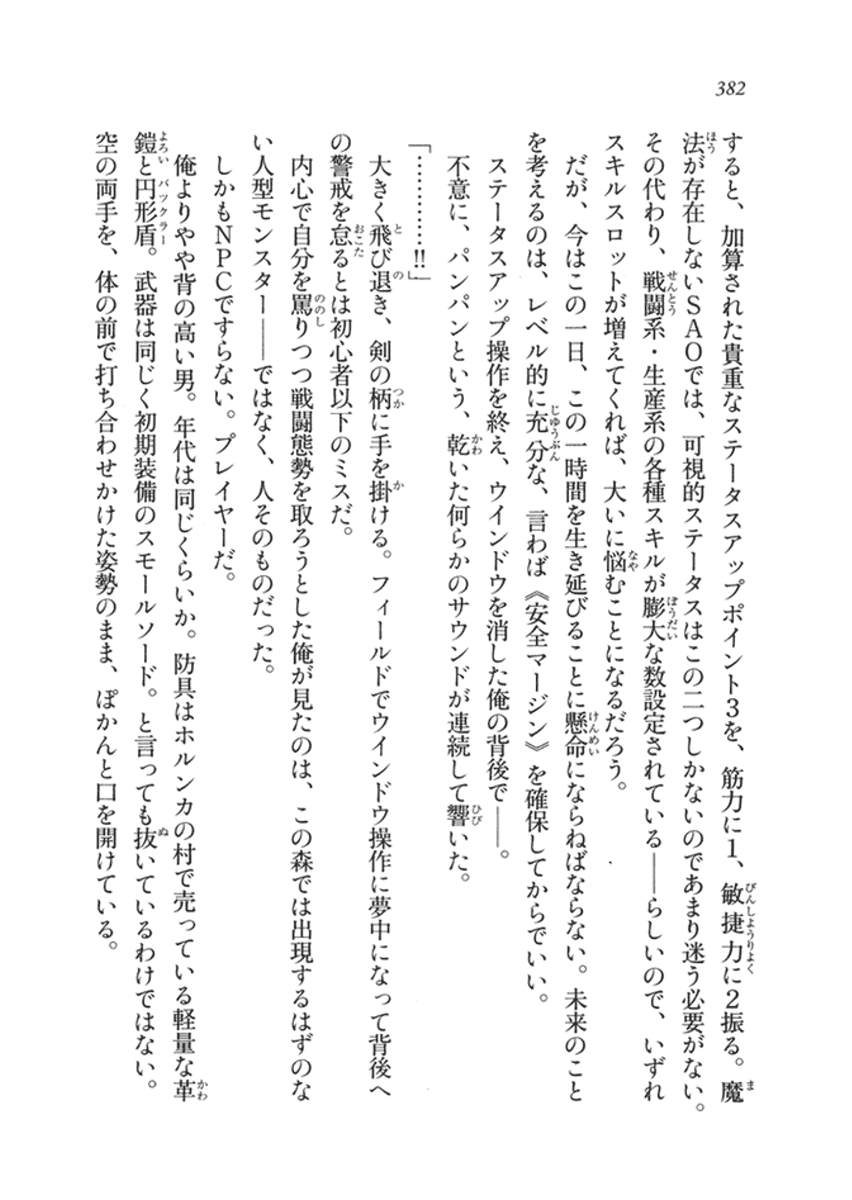 382
すると、加算された貴重なステータスアップポイント3を、筋力に1、敏捷力に2振る。魔
法が存在しないSAOでは、可視的ステータスはこの二つしかないのであまり迷う必要がない。
その代わり、戦闘系・生産系の各種スキルが膨大な数設定されている――らしいので、いずれ
スキルスロットが増えてくれば、大いに悩むことになるだろう。
だが、今はこの一日、この一時間を生き延びることに懸命にならねばならない。未来のこと
を考えるのは、レベル的に充分な、言わば《安全マージン》を確保してからでいい。
ステータスアップ操作を終え、ウインドウを消した俺の背後で――。
不意に、パンパンという、乾いた何らかのサウンドが連続して響いた。
「…………!!」
大きく飛び退き、剣の柄に手を掛ける。フィールドでウインドウ操作に夢中になって背後へ
の警戒を怠るとは初心者以下のミスだ。
内心で自分を罵りつつ戦闘態勢を取ろうとした俺が見たのは、この森では出現するはずのな
い人型モンスター――ではなく、人そのものだった。
しかもNPCですらない。プレイヤーだ。
俺よりやや背の高い男。年代は同じくらいか。防具はホルンカの村で売っている軽量な革
鎧と円形盾。武器は同じく初期装備のスモールソード。と言っても抜いているわけではない。
空の両手を、体の前で打ち合わせかけた姿勢のまま、ぽかんと口を開けている。